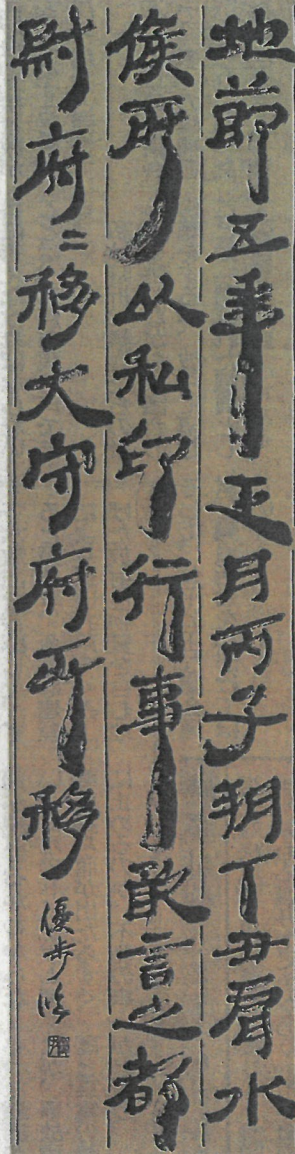 地節五年正月丙子朔丁丑肩水
候房以私印行事敢言之都
尉府〻移大守府所移
優步臨